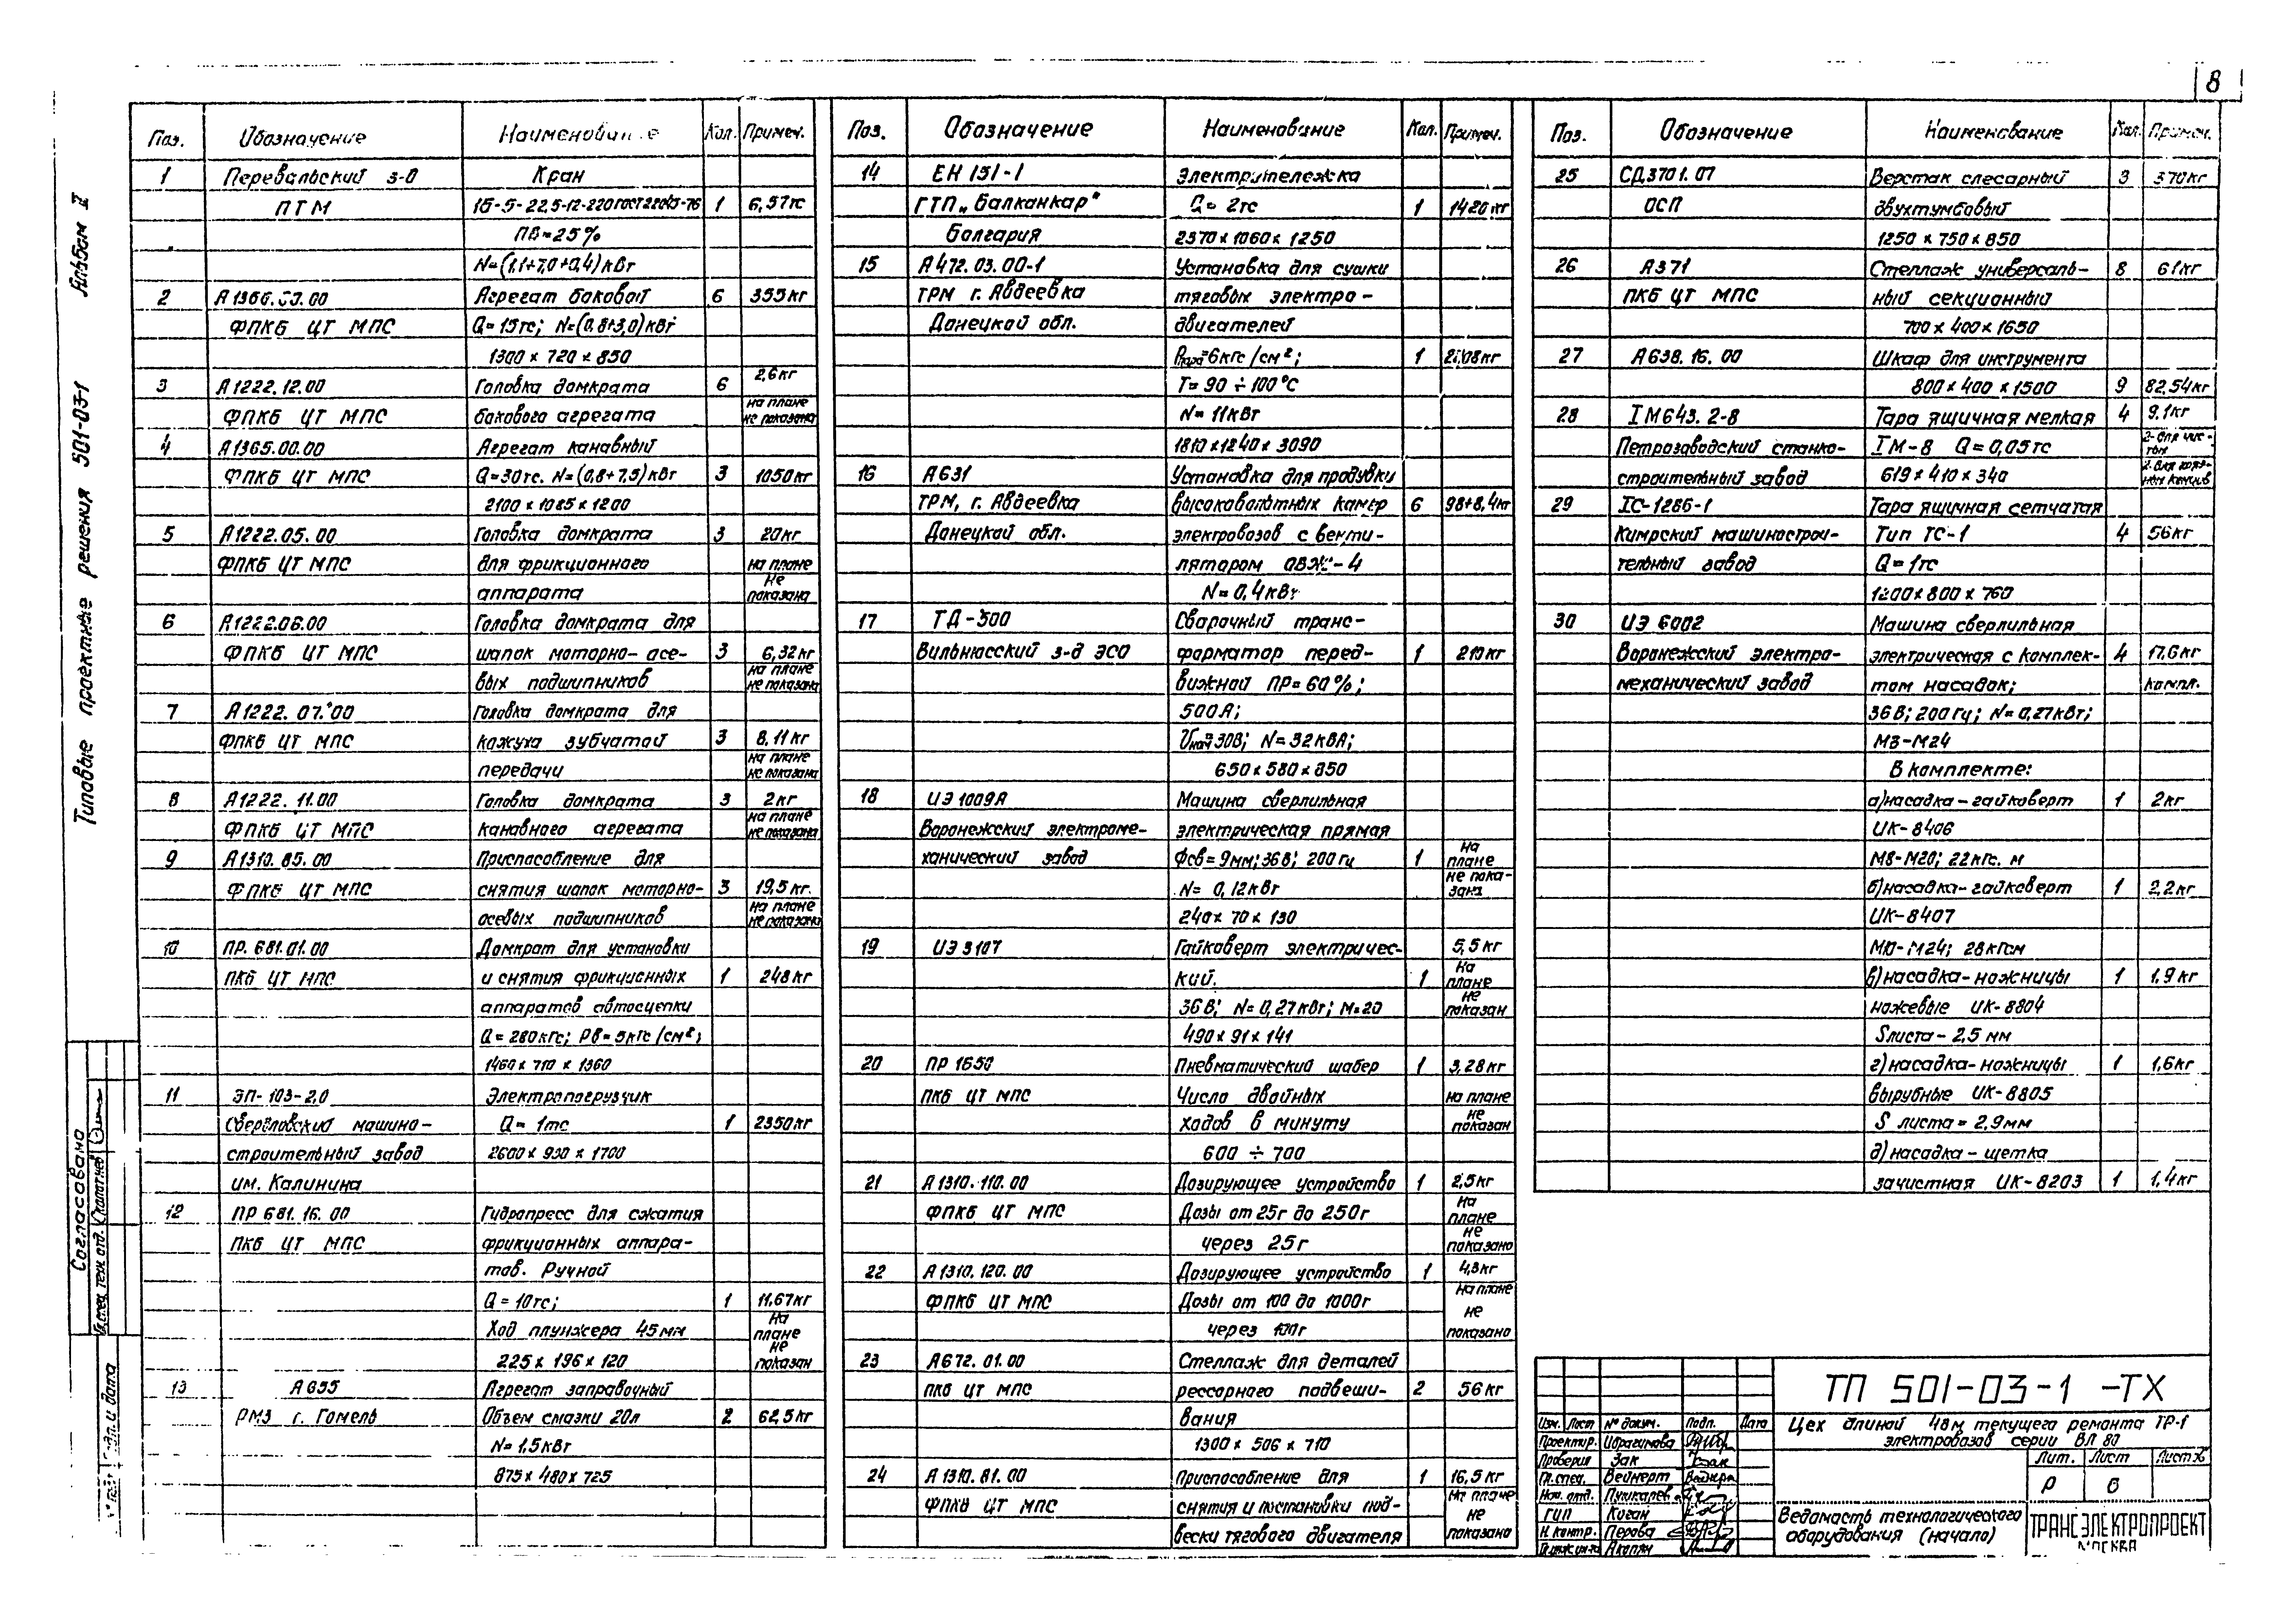 8
Альбом II
Типовые проектные решения 501-03-1
Поз. Обозначение Наименование Кол. Примеч.
1 Перевальский з-д Кран
ПТМ 1 6,57тс
ПВ=25%
N=(1,1+7,0+0,4)кВт
2 А1366.00.00 Агрегат боковой 6 355кг
ФПКБ ЦТ МПС Q=15тс; N=(0,8+3,0)кВт
1300 × 720 × 850
3 А1222.12.00 Головка домкрата 6 2,6кг
ФПКБ ЦТ МПС бокового агрегата на плане не показана
4 А1365.00.00 Агрегат канавный
ФПКБ ЦТ МПС Q=30тс. N=(0,8+7,5)кВт 3 1050кг
2100 × 1085 × 1200
5 А1222.05.00 Головка домкрата 3 20кг
ФПКБ ЦТ МПС для фрикционного на плане
аппарата не показана
6 А1222.06.00 Головка домкрата для
ФПКБ ЦТ МПС шапок моторно-осе- 3 6,32кг
вых подшипников на плане не показана
7 А1222.07.00 Головка домкрата для
ФПКБ ЦТ МПС кожуха зубчатой 3 8,11кг
передачи на плане не показана
8 А1222.11.00 Головка домкрата 3 2кг
ФПКБ ЦТ МПС канавного агрегата на плане не показана
9 А1310.85.00 Приспособление для
ФПКБ ЦТ МПС снятия шапок моторно- 3 19,5кг.
осевых подшипников на плане не показано
10 ПР.681.01.00 Домкрат для установки
ПКБ ЦТ МПС и снятия фрикционных 1 248кг
аппаратов автосцепки
Q=280кгс; Рв=5кгс/см²;
1460 × 710 × 1360
11 ЭП-103-2,0 Электропогрузчик
Свердловский машино- Q=1тс 1 2350кг
строительный завод 2600 × 930 × 1700
им. Калинина
12 ПР 681.16.00 Гидропресс для сжатия
ПКБ ЦТ МПС фрикционных аппара-
тов. Ручной
Q=10тс; 1 11,67кг
Ход плунжера 45мм на плане
225 × 196 × 120 не показан
13 А655 Агрегат заправочный
РМЗ г. Гомель Объем смазки 20л 2 62,5кг
N=1,5кВт
875 × 480 × 725
Поз. Обозначение Наименование Кол. Примеч.
14 ЕН 151-1 Электротележка
ГТП „Балканкар" Q=2тс 1 1420кг
Болгария 2370 × 1060 × 1250
15 А472.03.00-1 Установка для сушки
ТРМ г. Авдеевка тяговых электро-
Донецкой обл. двигателей
Рпара=6кгс/см²; 1
Т=90÷100°С
N=11кВт
1810×1240×3090
16 А631 Установка для продувки
ТРМ, г. Авдеевка высоковольтных камер 6 98+8,4кг
Донецкой обл. электровозов с венти-
лятором ОВЭЖ-4
N=0,4кВт
17 ТД-500 Сварочный транс-
Вильнюсский з-д ЭСО форматор перед- 1 210кг
вижной ПР=60%;
500А;
Uном=30В; N=32кВА;
650×580×850
18 ИЭ1009А Машина сверлильная
Воронежский электроме- электрическая прямая
ханический завод Фсв=9мм; 36В; 200гц 1 на плане
N=0,12кВт не пока-зана
240×70×130
19 ИЭ3107 Гайковерт электричес- 5,5кг
кий. 1 на плане
36В; N=0,27кВт; М=20 не показан
490×91×141
20 ПР1650 Пневматический шабер 1 3,28кг
ПКБ ЦТ МПС Число двойных на плане
ходов в минуту не показан
600÷700
21 А1310.110.00 Дозирующее устройство 1 2,5кг
ФПКБ ЦТ МПС Дозы от 25г до 250г на плане
через 25г не показано
22 А1310.120.00 Дозирующее устройство 1 4,3кг
ФПКБ ЦТ МПС Дозы от 100 до 1000г на плане не
через 100г показано
23 А672.01.00 Стеллаж для деталей
ПКБ ЦТ МПС рессорного подвеши- 2 56кг
вания
1300×506×710
24 А1310.81.00 Приспособление для 1 16,5кг
ФПКБ ЦТ МПС снятия и постановки под- на плане не
вески тягового двигателя показано
Поз. Обозначение Наименование Кол. Примеч.
25 СД3701.07 Верстак слесарный 3 370кг
ОСП двухтумбовый
1250×750×850
26 А371 Стеллаж универсаль- 8 61кг
ПКБ ЦТ МПС ный секционный
700×400×1650
27 А638.16.00 Шкаф для инструмента
800×400×1500 9 82,54кг
28 IМ643.2-8 Тара ящичная мелкая 4 9,1кг
Петрозаводский станко- IМ-8 Q=0,05тс 2-для чис-тых
строительный завод 619×410×340
29 IС-1286-1 Тара ящичная сетчатая
Кимрский машинострои- Тип ТС-1 4 56кг
тельный завод Q=1тс
1200×800×760
30 ИЭ6002 Машина сверлильная
Воронежский электро- электрическая с комплек- 4 17,6кг
механический завод том насадок; компл.
36В; 200гц; N=0,27кВт;
М3-М24
В комплекте:
а)насадка-гайковерт 1 2кг
ИК-8406
М8-М20; 22кгс.м
б)насадка-гайковерт 1 2,2кг
ИК-8407
М10-М24; 28кгсм
в)насадка-ножницы 1 1,9кг
ножевые ИК-8804
Sлиста-2,5мм
г)насадка-ножницы 1 1,6кг
вырубные ИК-8805
S листа=2,9мм
д)насадка-щетка
зачистная ИК-8203 1 1,4кг
Согласовано
Подп. и дата
ТП 501-03-1 -ТХ
Изм. Лист № докум. Подп. Дата
Цех длиной 48м текущего ремонта ТР-1
электровозов серии ВЛ80
Проектир. Ибрагимова
Проверил Зак
Гл.спец. Вейнерт
Нач.отд. Пушкарев
ГИП Коган
Н.контр. Перова
Акопян
Лит. Лист Листов
Р 6
Ведомость технологического
оборудования (начало)
ТРАНСЭЛЕКТРОПРОЕКТ
МОСКВА